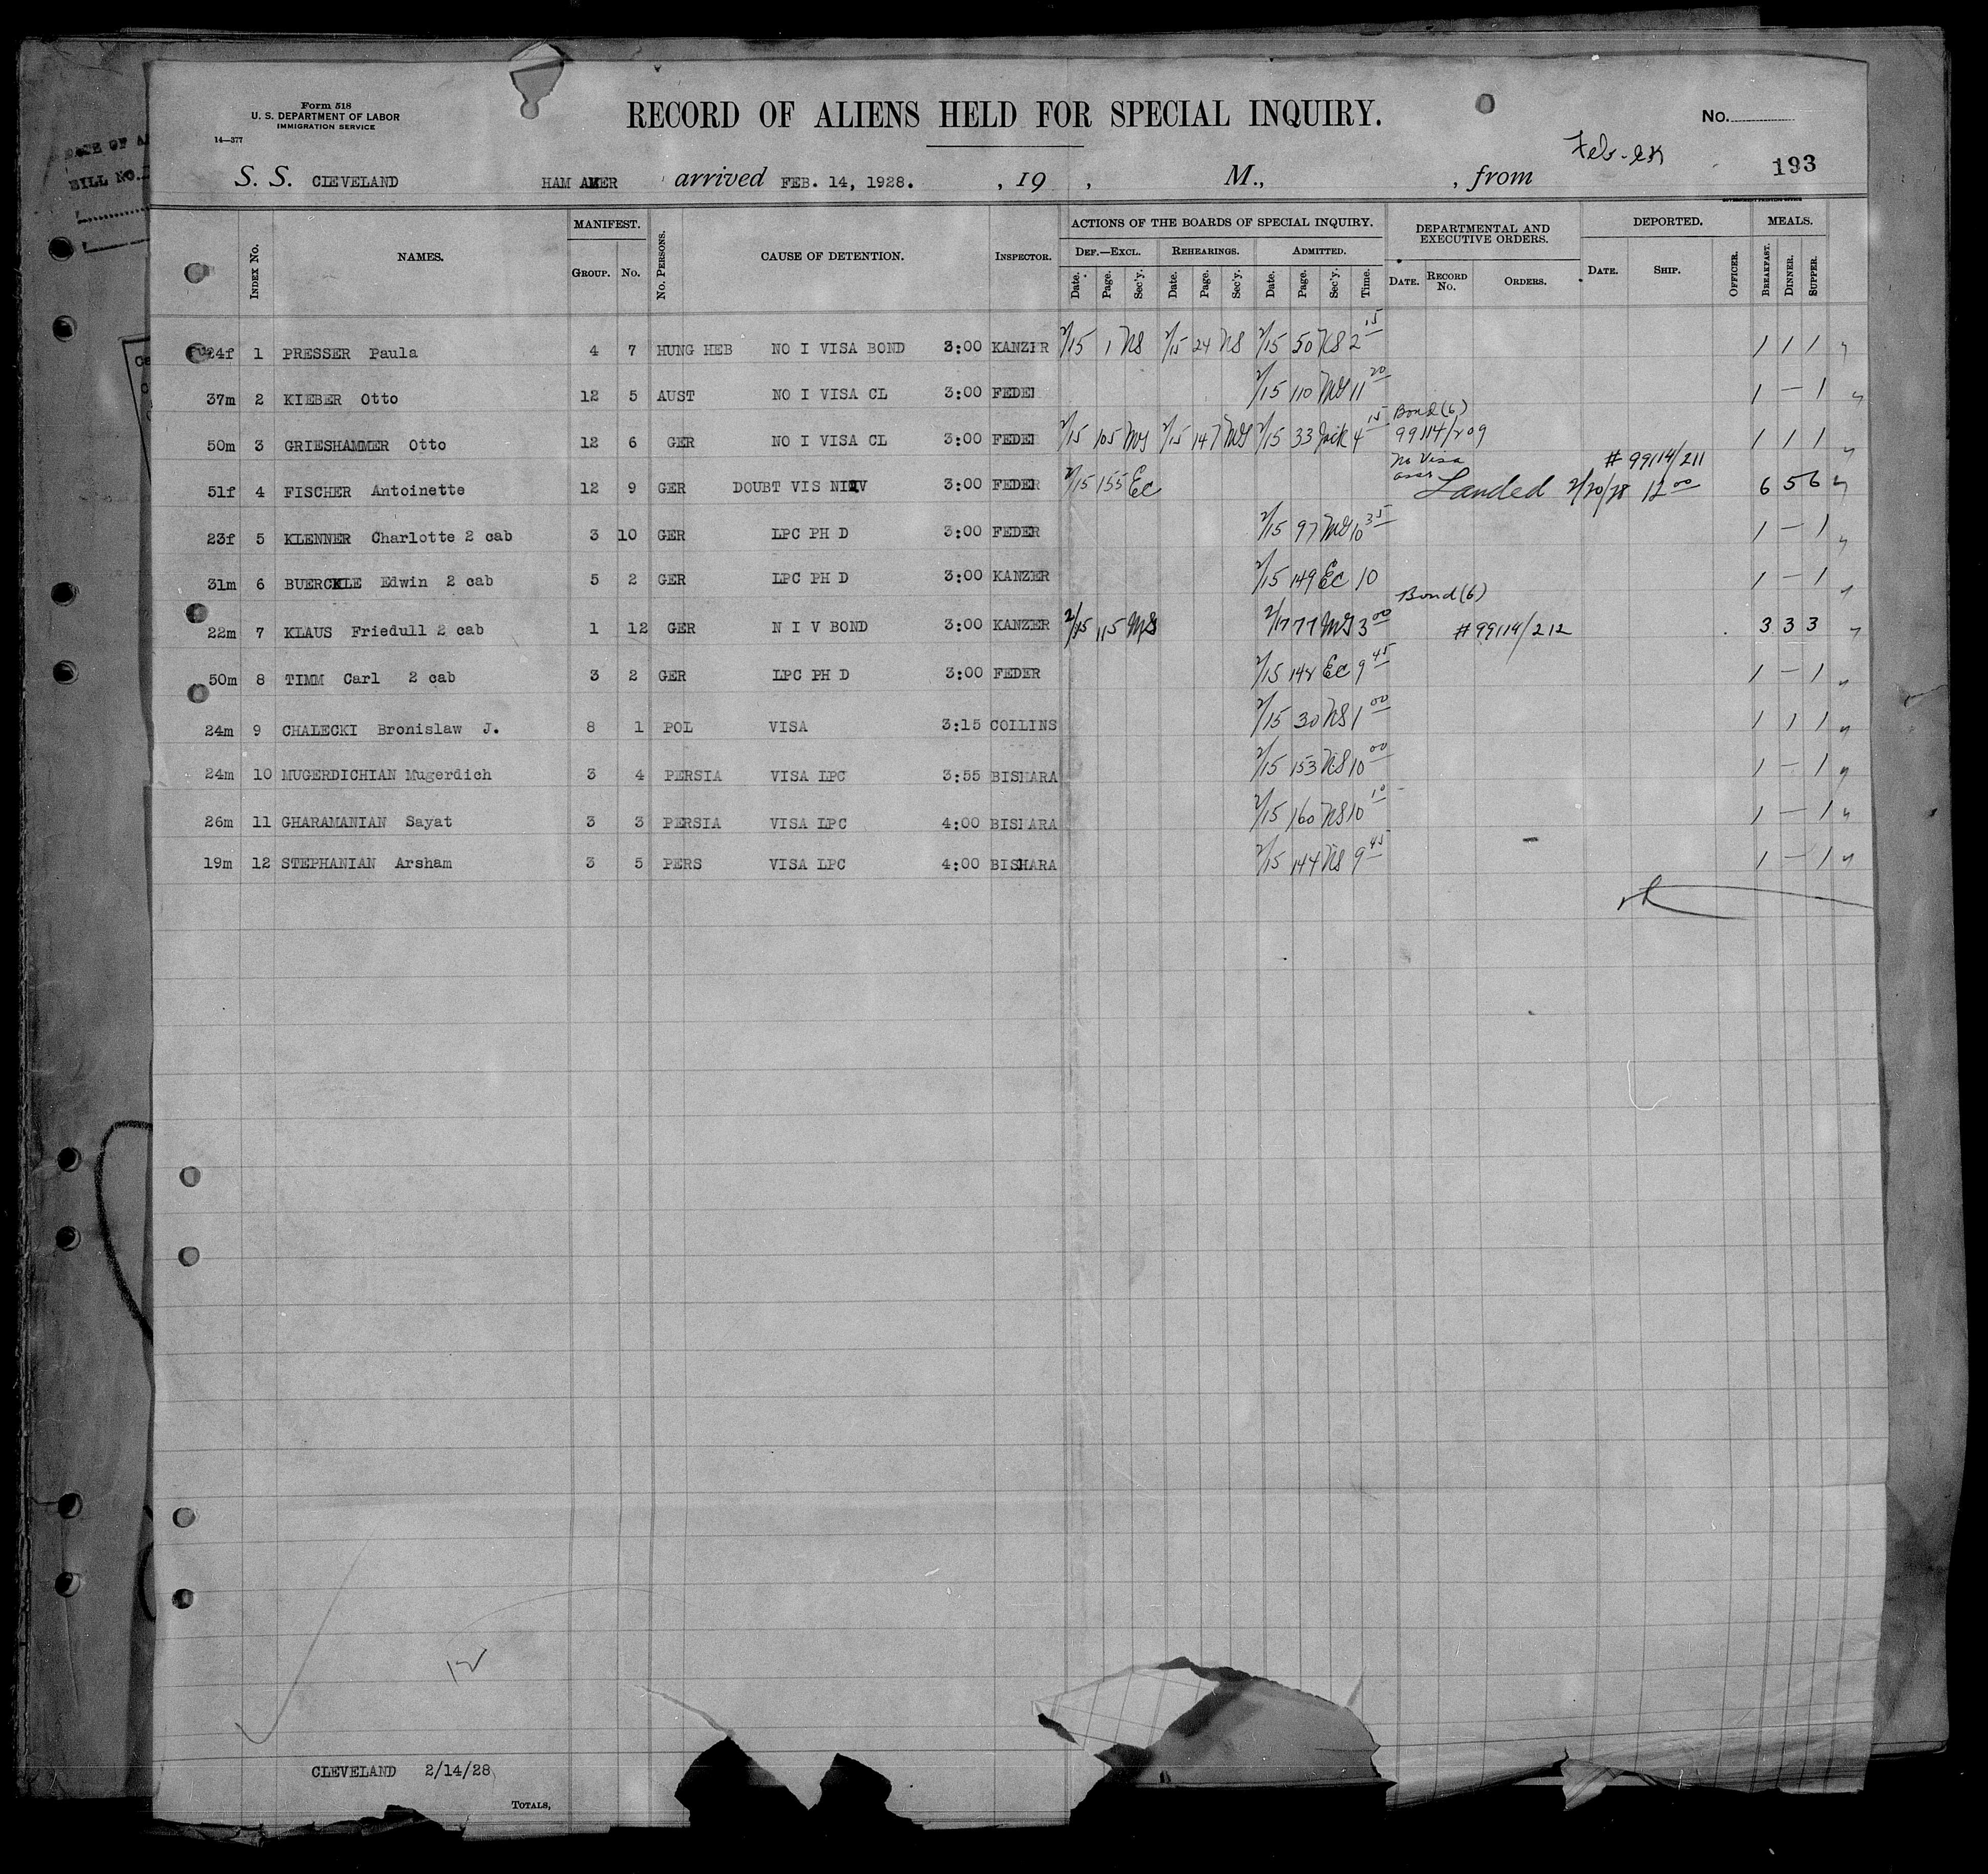 Form 518
U. S. DEPARTMENT OF LABOR
IMMIGRATION SERVICE
14—377
RECORD OF ALIENS HELD FOR SPECIAL INQUIRY.
No.
193
S. S. CLEVELAND HAM AMER arrived FEB. 14, 1928. , 19 , M., , from
BILL NO.
INDEX No. NAMES. MANIFEST. GROUP. No. No. PERSONS. CAUSE OF DETENTION. INSPECTOR. ACTIONS OF THE BOARDS OF SPECIAL INQUIRY. DEF.—EXCL. Date. Page. Sec'y. REHEARINGS. Date. Page. Sec'y. ADMITTED. Date. Page. Sec'y. Time. DEPARTMENTAL AND EXECUTIVE ORDERS. DATE. RECORD No. ORDERS. DEPORTED. DATE. SHIP. OFFICER. MEALS. BREAKFAST. DINNER. SUPPER.
24f 1 PRESSER Paula 4 7 HUNG HEB NO I VISA BOND 3:00 KANZER 2/15 1 NS 2/15 24 NS 2/15 50 NS 2 15 1 1 1
37m 2 KIEBER Otto 12 5 AUST NO I VISA CL 3:00 FEDER 2/15 110 MS 11 20 1 — 1
Bond (6)
50m 3 GRIESHAMMER Otto 12 6 GER NO I VISA CL 3:00 FEDER 2/15 105 MS 2/15 147 MS 2/15 33 Jack 4 15 99114/209 1 1 1
No Visa # 99114/211
51f 4 FISCHER Antoinette 12 9 GER DOUBT VIS NIV 3:00 FEDER 2/15 155 Ec Landed 2/20/28 12 00 6 5 6
23f 5 KLENNER Charlotte 2 cab 3 10 GER LPC PH D 3:00 FEDER 2/15 97 MS 10 35 1 — 1
31m 6 BUERCKLE Edwin 2 cab 5 2 GER LPC PH D 3:00 KANZER 2/15 149 Ec 10 1 — 1
Bond (6)
22m 7 KLAUS Friedull 2 cab 1 12 GER N I V BOND 3:00 KANZER 2/15 115 MS 2/17 77 MS 3 00 # 99114/212 3 3 3
50m 8 TIMM Carl 2 cab 3 2 GER LPC PH D 3:00 FEDER 2/15 148 Ec 9 45 1 — 1
24m 9 CHALECKI Bronislaw J. 8 1 POL VISA 3:15 COLLINS 2/15 30 NS 1 00 1 1 1
24m 10 MUGERDICHIAN Mugerdich 3 4 PERSIA VISA LPC 3:55 BISHARA 2/15 153 NS 10 00 1 — 1
26m 11 GHARAMANIAN Sayat 3 3 PERSIA VISA LPC 4:00 BISHARA 2/15 160 NS 10 10 1 — 1
19m 12 STEPHANIAN Arsham 3 5 PERS VISA LPC 4:00 BISHARA 2/15 144 NS 9 45 1 — 1
12
CLEVELAND 2/14/28
TOTALS,